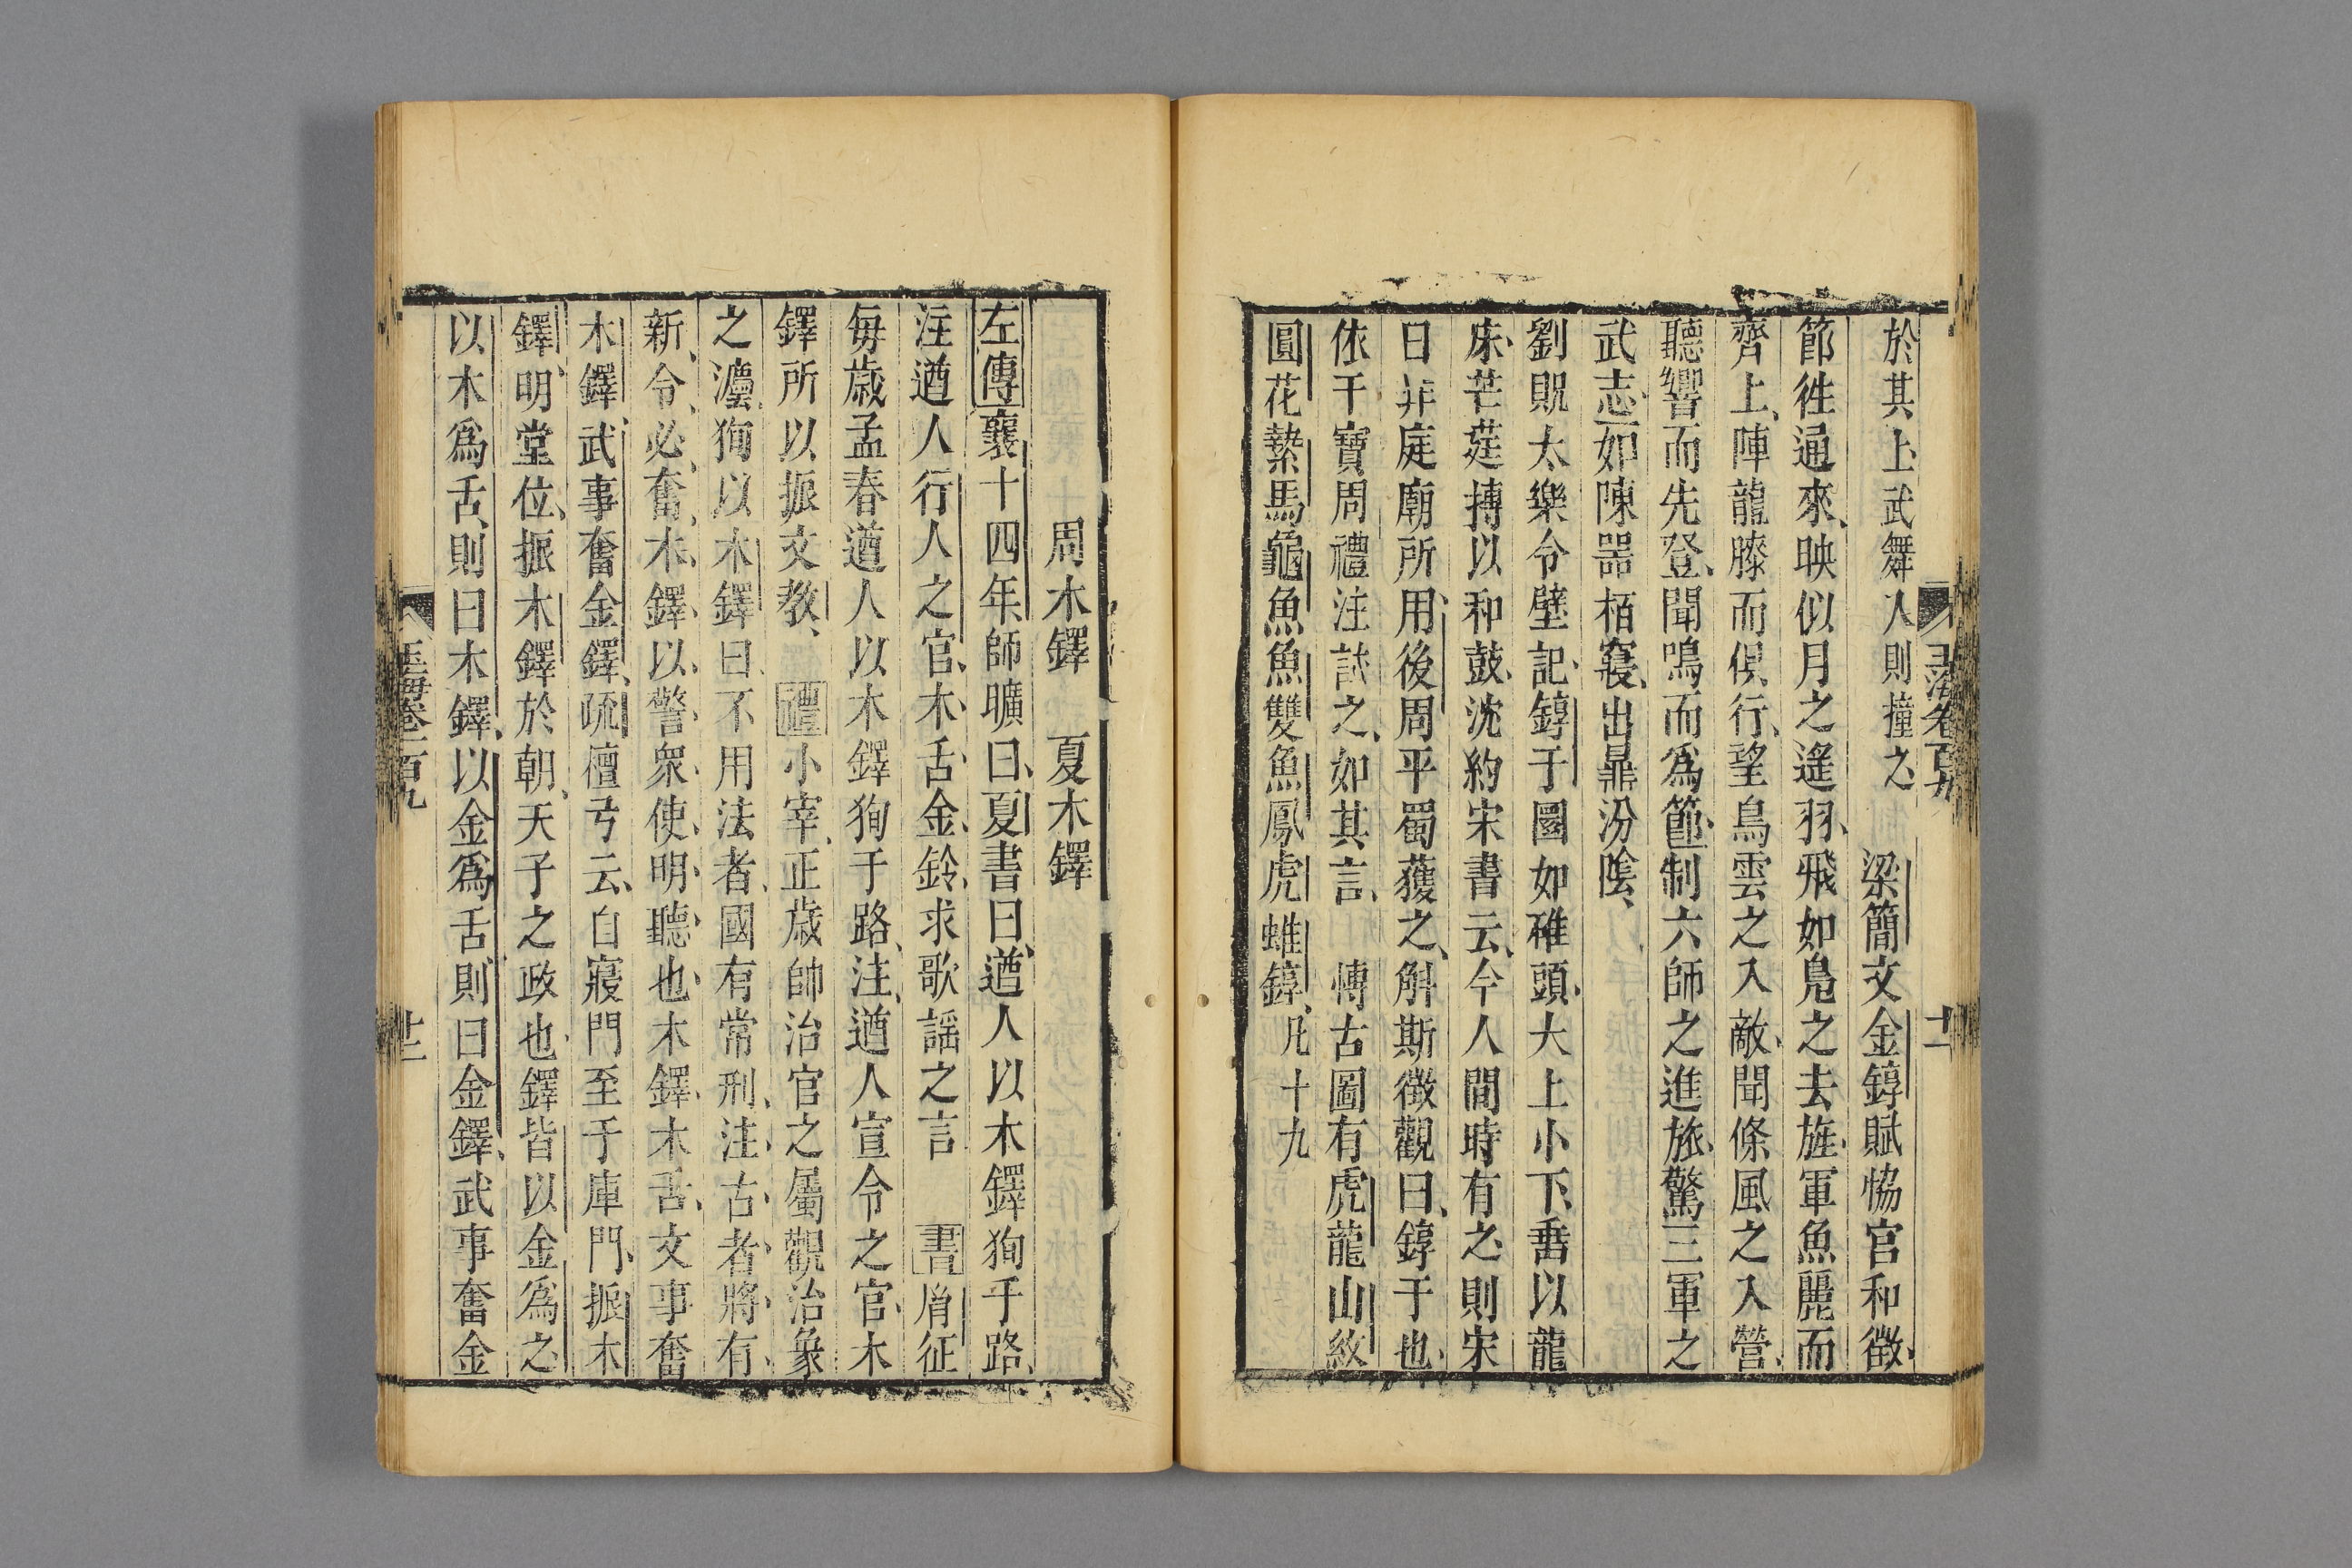 於其上武舞入則撞之　梁簡文金錞賦恊宫和徵
節徃通來映似月之遙羽飛如鳧之去旌軍魚麗而
齊上陣龍膝而俱行望鳥雲之入敵聞條風之入營
聽響而先登聞鳴而爲節制六師之進旅驚三軍之
武志如陳噐栢寑出鼎汾隂
劉貺太樂令壁記錞于圜如碓頭大上小下垂以龍
床芒莛摶以和鼓沈約宋書云今人間時有之則宋
日非庭廟所用後周平蜀獲之斛斯徵觀曰錞于也
依干寶周禮注試之如其言　愽古圖有虎龍山紋
圓花縶馬龜魚魚雙魚鳳虎蜼錞凡十九
玉海卷百九
十二
周木鐸　夏木鐸
左傳襄十四年師曠曰夏書曰遒人以木鐸狥于路
注遒人行人之官木舌金鈴求歌謡之言　書㣧征
每歳孟春遒人以木鐸狥于路注遒人宣令之官木
鐸所以振文教　禮小宰正歳帥治官之屬觀治象
之灋狥以木鐸曰不用法者國有常刑注古者將有
新令必奮木鐸以警衆使明聽也木鐸木舌文事奮
木鐸武事奮金鐸疏檀弓云自寢門至于庫門振木
鐸明堂位振木鐸於朝天子之政也鐸皆以金爲之
以木爲舌則曰木鐸以金爲舌則曰金鐸武事奮金
玉海卷一百九